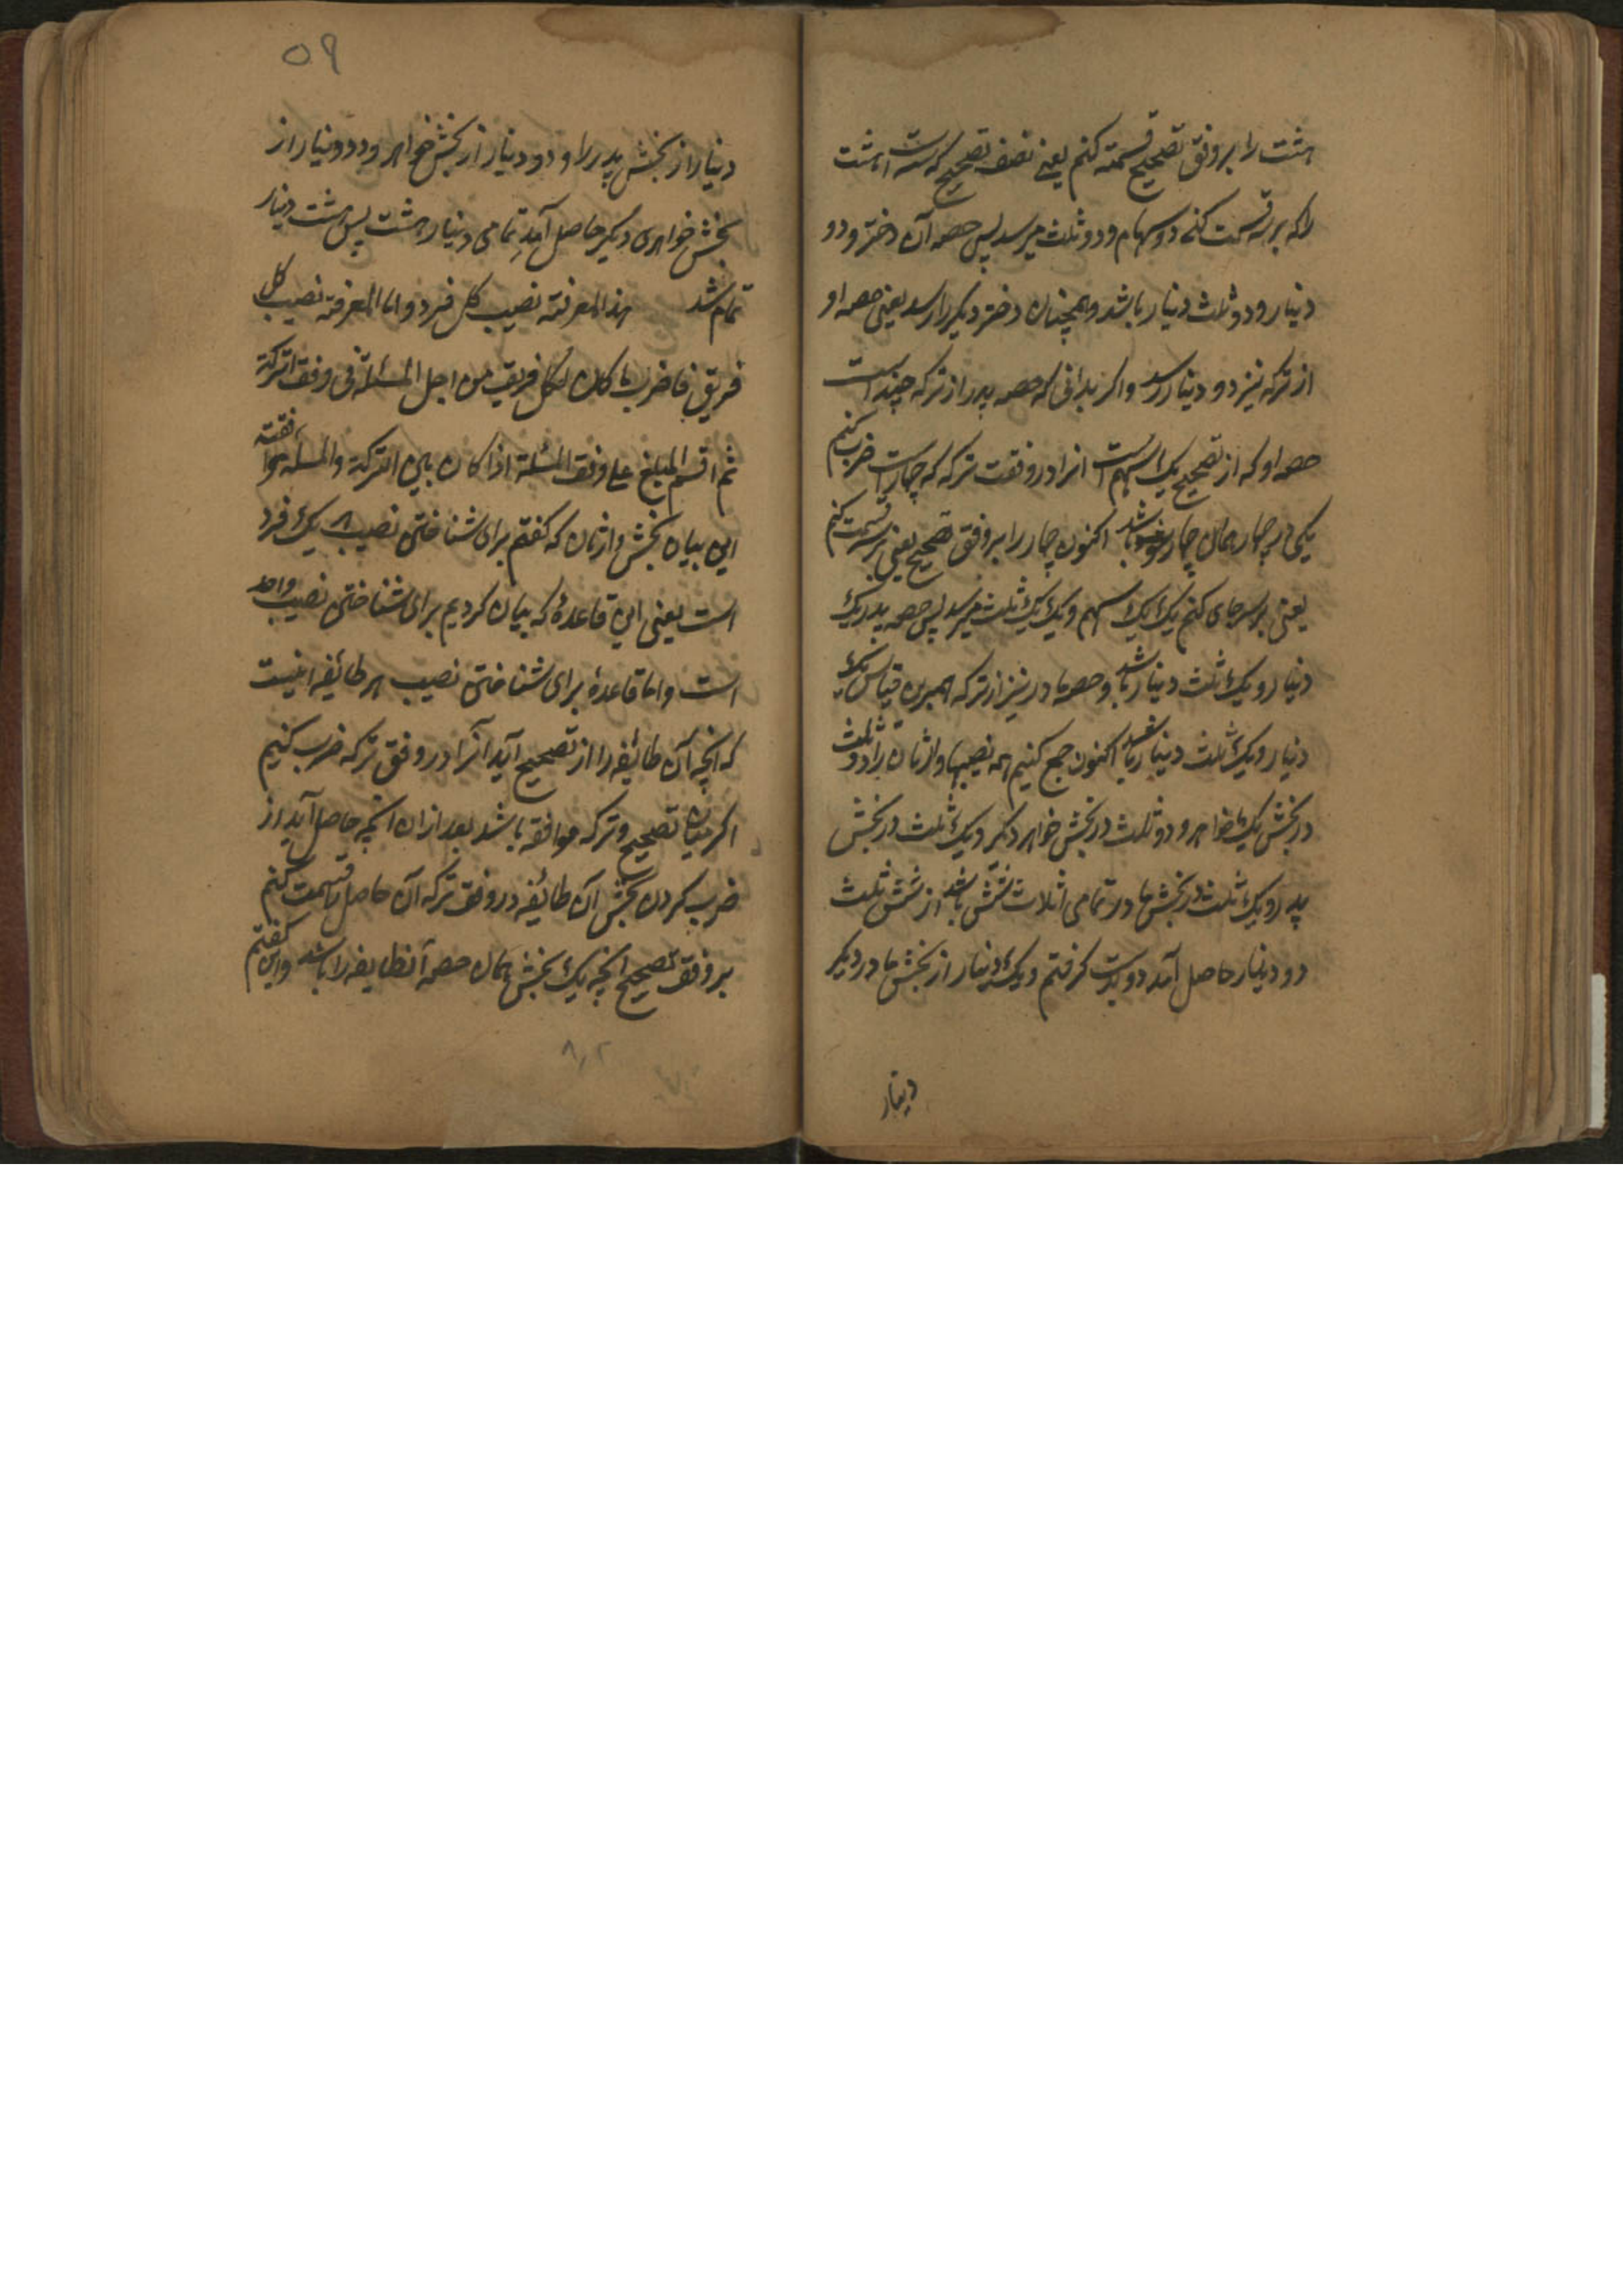 هشت را بر وفق تصحیح قسمته کنم یعنے نصف تصحیح که سه است هشت
را که بر سه قسمت کنے دو سهام و دو ثلث میرسد پس حصه آن دختر و دو
دینار و دو ثلث دینار باشد و همچنان دختر دیکر را رسد یعنی حصه او
از ترکه نیز دو دینار رسد و اکر بدانی که حصه پدر از ترکه چند است
حصه او که از تصحیح یک سهم است انرا در وفقت ترکه که چهار است ضرب کنم
یکی در چهار همان چهار باشد اکنون چهار را بر وفق تصحیح یعنی بر سه قسمت کنم
یعنی بر سه جای کنم یک یک سهم و یک یک ثلث میرسد پس حصه پدر یک
دینار و یک ثلث دینار باشد و حصه مادر نیز از ترکه همبرین قیاس یک
دینار و یک ثلث دینار باشد اکنون جمع کنیم همه نصیبها وارثان را دو ثلث
در بخش یک خواهر و دو ثلث در بخش خواهر دکر و یک ثلث در بخش
پدر و یک ثلث در بخش مادر تمامی اثلاث شش باشد از شش ثلث
دو دینار حاصل آمد دو بدست کرفتم و یک دینار از بخش مادر دیکر
دینار
۵۹
دینار از بخش پدر را و دو دینار از بخش خواهر و دو دینار از
بخش خواهری دیکر حاصل آمد تمامی دینار هشت پس هشت دینار
تمام شد هذا لمعرفته نصیب کل فرد و اما المعرفته نصیب کل
فریق فاضرب ما کان لکل فریق من اصل المسئلة فی وفق الترکة
ثم اقسم المبلغ علے وفق المسئلة اذا کان بین الترکة والمسئله موافقته
این بیان بخش وارثان که کفتم برای شناختن نصیب یک فرد
است یعنی این قاعدهٔ که بیان کردیم برای شناختن نصیب واحد
است و اما قاعدهٔ برای شناختن نصیب هر طائفه اینست
که انچه آن طائفه را از تصحیح آید آنرا در وفق ترکه ضرب کنیم
اکر میان تصحیح و ترکه موافقه باشد بعد ازان انچه حاصل آید از
ضرب کردن بخش آن طائفه در وفق ترکه آن حاصل را قسمت کنم
بر وفق تصحیح انچه یک بخش همان حصهٔ آنطایفه را باشد و این کفتم